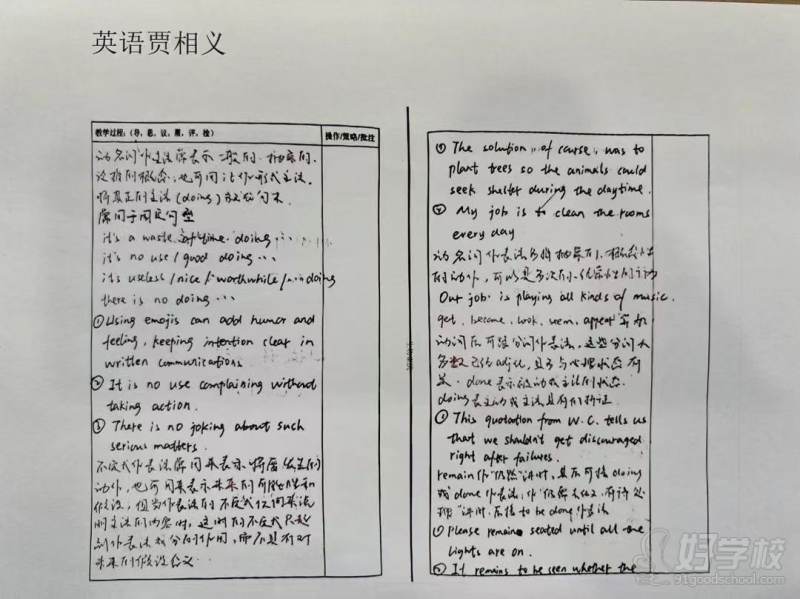 英语贾相义
教学过程：（导、思、议、展、评、检）
操作/策略/批注
动名词作主语常表示一般的、抽象的、
没有的概念，也可用it作形式主语，
将真正的主语(doing)放于句末
常用于固定句型
it's a waste of time doing ···
it's no use / good doing ···
it's useless / nice / worthwhile / doing
there is no doing ···
① Using emojis can add humor and
feeling, keeping intention clear in
written communications
② It is no use complaining without
taking action.
③ There is no joking about such
serious matters.
不定式作表语常用来表示将要发生的
动作，也可用来表示未来的可能性和
假设，但当作表语的不定式仅用来说
明主语的内容时，这时的不定式只起
到作表语成分的作用，而不具有对
未来的假设含义
① The solution, of course, was to
plant trees so the animals could
seek shelter during the daytime.
② My job is to clean the rooms
every day
动名词作表语多指抽象的、概括性
的动作，可以是多次的、经常性的行为
Our job is playing all kinds of music.
get, become, look, seem, appear 等系
动词后可跟分词作表语，这些分词大
多数已经adj化，且多与心理状态有
关，done表示被动或主语的状态，
doing表主动或主语具有的特征
① This quotation from W.C. tells us
that we shouldn't get discouraged
right after failures.
remain作"仍然"讲时，其后可接doing
或done作表语，作"仍需去做, 有待处
理"讲时，后接to be done作表语
① Please remain seated until all the
lights are on.
② It remains to be seen whether the
好学校
91goodschool.com